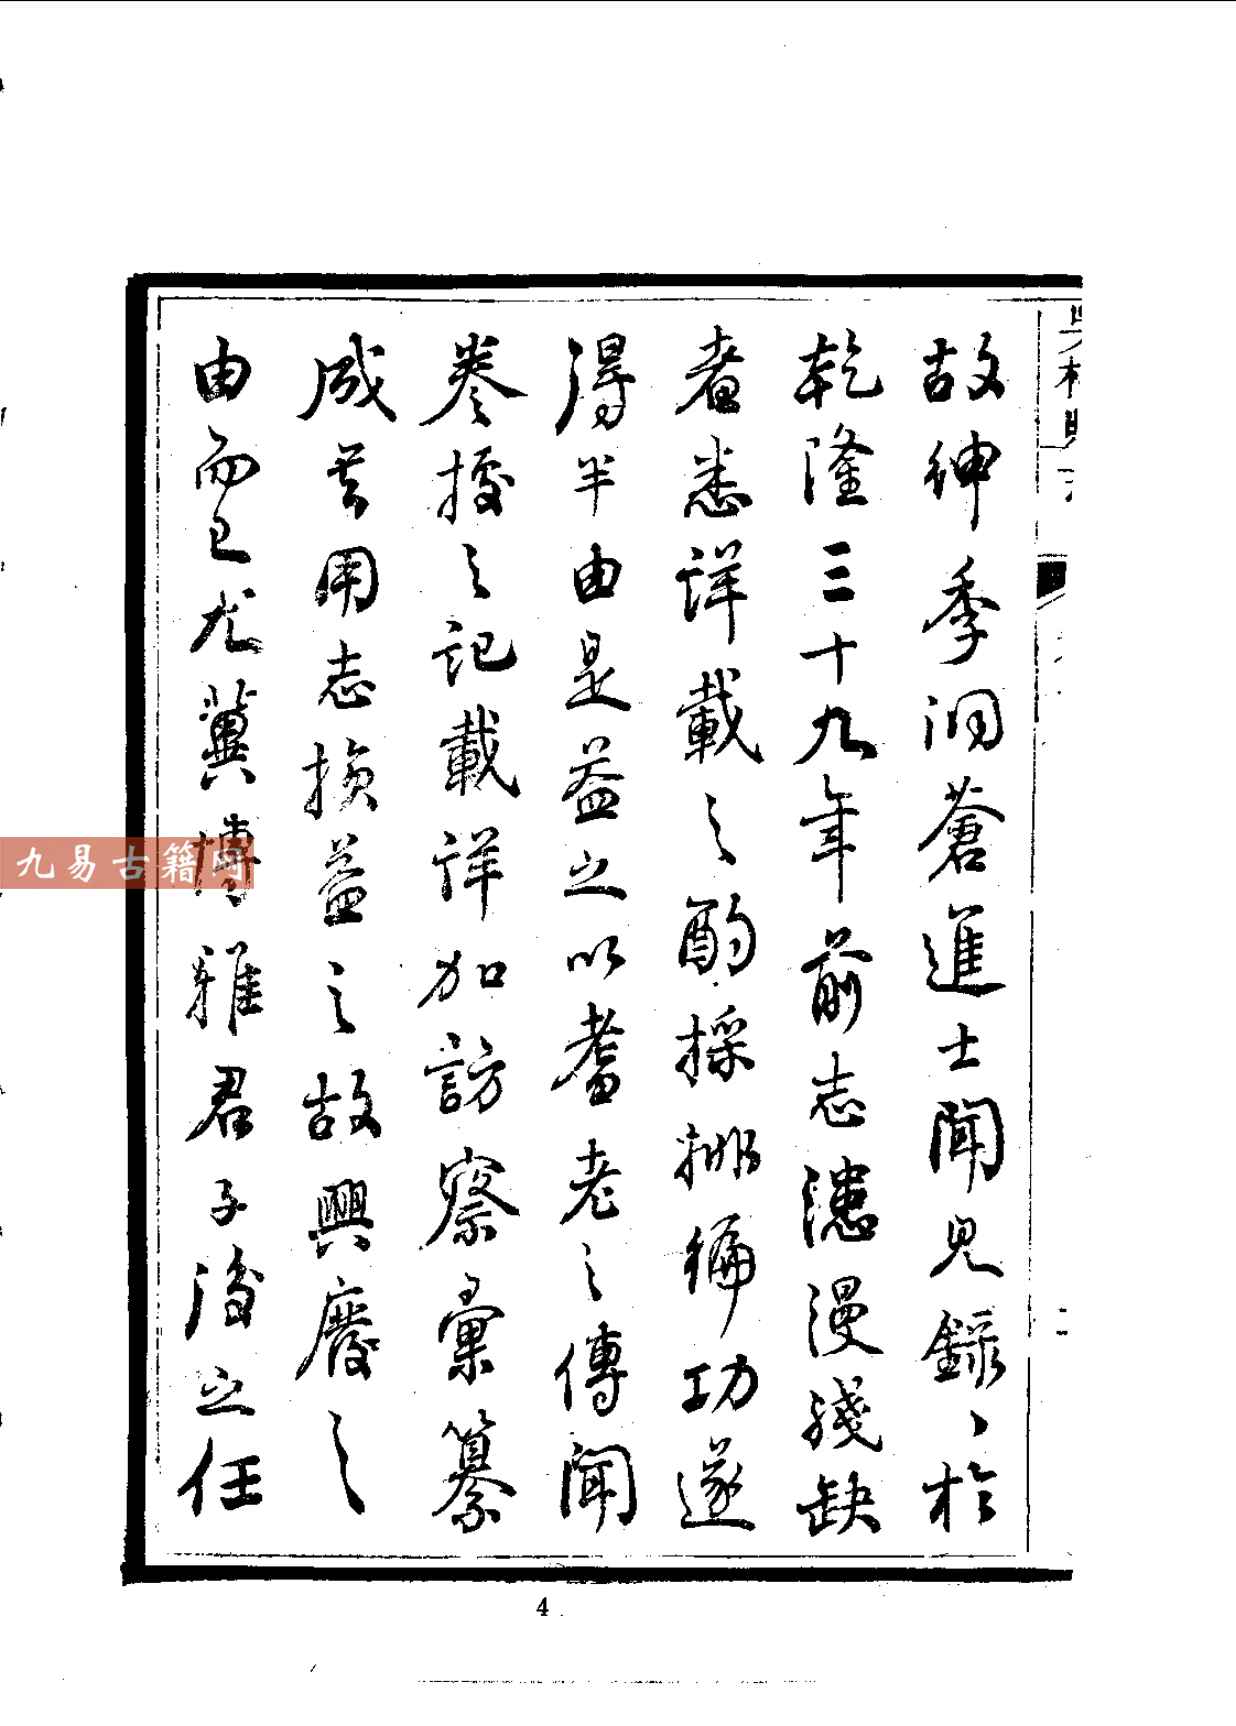 故紳季洞蒼進士聞見錄、於
乾隆三十九年前志漶漫殘缺
者悉詳載之酌採排編功遂
得半由是益之以耆老之傳聞
參授之記載詳加訪察彙纂
成書用志損益之故興廢之
由而已尤冀博雅君子後之任
九易古籍网
4